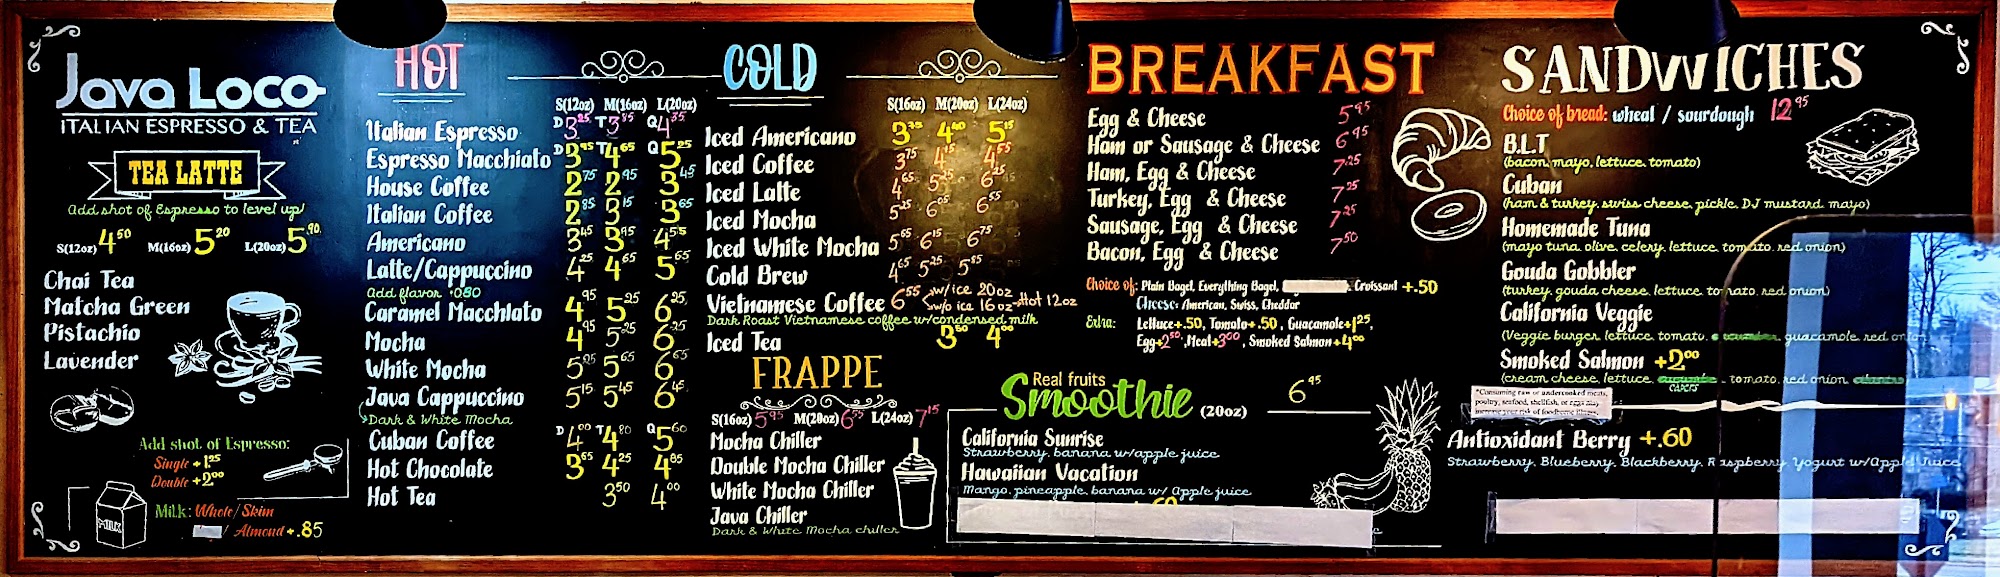 Java Loco
ITALIAN ESPRESSO & TEA
TEA LATTE
Add shot of Espresso to level up!
S(12oz) 4.50 M(16oz) 5.20 L(20oz) 5.90
Chai Tea
Matcha Green
Pistachio
Lavender
Add shot of Espresso:
Single +1.25
Double +2.00
MILK
Milk: Whole/Skim
/ Almond +.85
HOT
S(12oz) M(16oz) L(20oz)
Italian Espresso D 3.25 T 3.85 Q 4.35
Espresso Macchiato D 3.95 T 4.65 Q 5.25
House Coffee 2.75 2.95 3.45
Italian Coffee 2.85 3.15 3.65
Americano 3.45 3.95 4.55
Latte/Cappuccino 4.25 4.65 5.65
Add flavor +0.80
Caramel Macchiato 4.95 5.25 6.25
Mocha 4.95 5.25 6.25
White Mocha 5.25 5.65 6.65
Java Cappuccino 5.15 5.45 6.45
Dark & White Mocha
Cuban Coffee D 4.00 T 4.80 Q 5.60
Hot Chocolate 3.65 4.25 4.85
Hot Tea 3.50 4.00
COLD
S(16oz) M(20oz) L(24oz)
Iced Americano 3.75 4.40 5.15
Iced Coffee 3.75 4.15 4.55
Iced Latte 4.65 5.25 6.25
Iced Mocha 5.25 6.05 6.55
Iced White Mocha 5.65 6.15 6.75
Cold Brew 4.65 5.25 5.85
Vietnamese Coffee 6.55 w/ice 20oz
w/o ice 16oz - Hot 12oz
Dark Roast Vietnamese coffee w/condensed milk
Iced Tea 3.50 4.00
FRAPPE
S(16oz) 5.95 M(20oz) 6.55 L(24oz) 7.15
Mocha Chiller
Double Mocha Chiller
White Mocha Chiller
Java Chiller
Dark & White Mocha chiller
BREAKFAST
Egg & Cheese 5.95
Ham or Sausage & Cheese 6.95
Ham, Egg & Cheese 7.25
Turkey, Egg & Cheese 7.25
Sausage, Egg & Cheese 7.25
Bacon, Egg & Cheese 7.50
Choice of: Plain Bagel, Everything Bagel, Croissant +.50
Cheese: American, Swiss, Cheddar
Extra: Lettuce+.50, Tomato+.50, Guacamole+1.25,
Egg+2.50, Meat+3.00, Smoked Salmon+4.00
Real fruits
Smoothie (20oz) 6.95
California Sunrise
Strawberry, banana w/apple juice
Hawaiian Vacation
Mango, pineapple, banana w/ Apple juice
SANDWICHES
Choice of bread: wheat / sourdough 12.95
B.L.T
(bacon, mayo, lettuce, tomato)
Cuban
(ham & turkey, swiss cheese, pickle, DJ mustard, mayo)
Homemade Tuna
(mayo tuna, olive, celery, lettuce, tomato, red onion)
Gouda Gobbler
(turkey, gouda cheese, lettuce, tomato, red onion)
California Veggie
(Veggie burger, lettuce, tomato, guacamole, red onion)
Smoked Salmon +2.00
(cream cheese, lettuce, tomato, red onion
capers
*Consuming raw or undercooked meats,
poultry, seafood, shellfish, or eggs may
increase your risk of foodborne illness.
Antioxidant Berry +.60
Strawberry, Blueberry, Blackberry, Raspberry, Yogurt w/Apple Juice